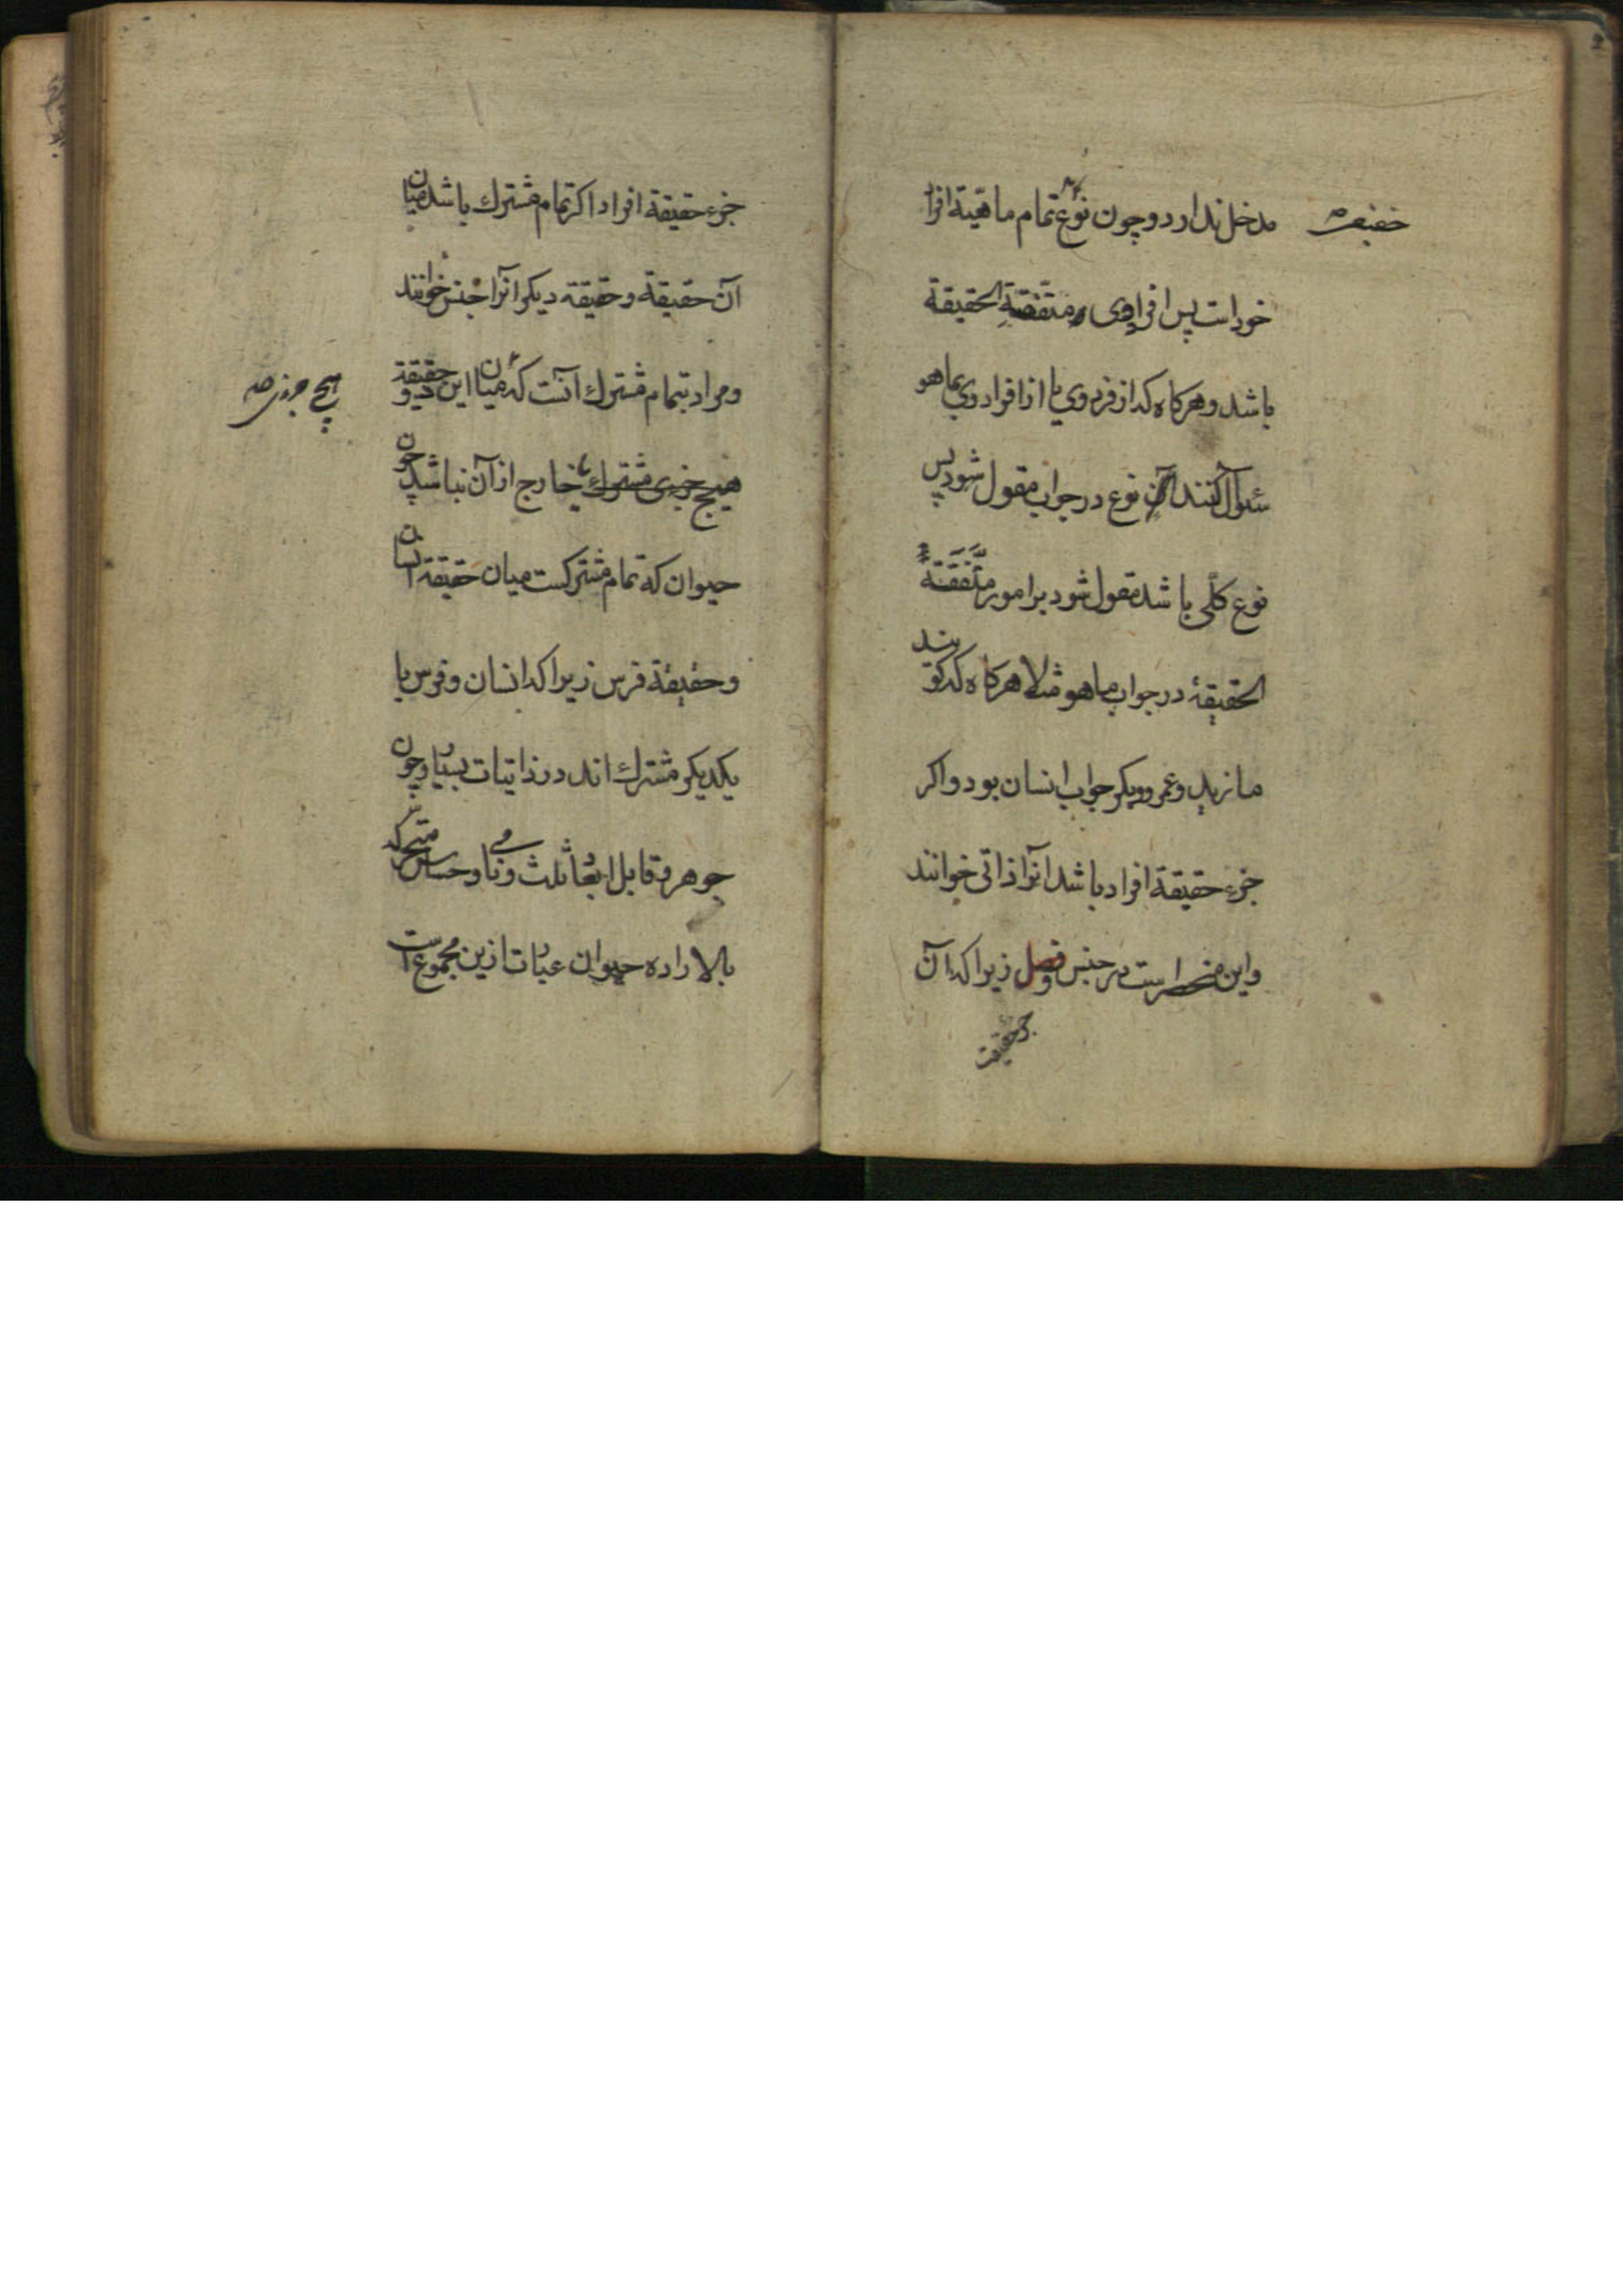 مدخل ندارد و چون نوع تمام ماهیّة افراد
خود است پس افراد وی متّفقة الحقیقة
باشد و هرکاه که از فرد وی یا از افراد وی بما هو
سئوال کنند آن نوع در جواب مقول شود پس
نوع کلّی باشد مقول شود بر امور متّفقة
الحقیقة در جواب ما هو مثلا هرکاه که کویند
ما زید و عمرو و بکر جواب انسان بود و اکر
جزء حقیقة افراد باشد آنرا ذاتی خوانند
و این منحصر است در جنس و فصل زیرا که آن
جزء حقیقت
جزء حقیقة افراد اکر تمام مشترك باشد میان
آن حقیقة و حقیقة دیکر آنرا جنس خوانند
و مراد بتمام مشترك آنست که میان این دو حقیقة
هیچ جزی مشترك خارج از آن نباشد چون
هیچ جزی صه
حیوان که تمام مشترکست میان حقیقة انسان
و حقیقة فرس زیرا که انسان و فرس با
یکدیکر مشترك اند در ذاتیات بسیار چون
جوهر و قابل ابعاد ثلث و نامی و حساس متحرکه
بالاراده حیوان عبارت ازین مجموع است